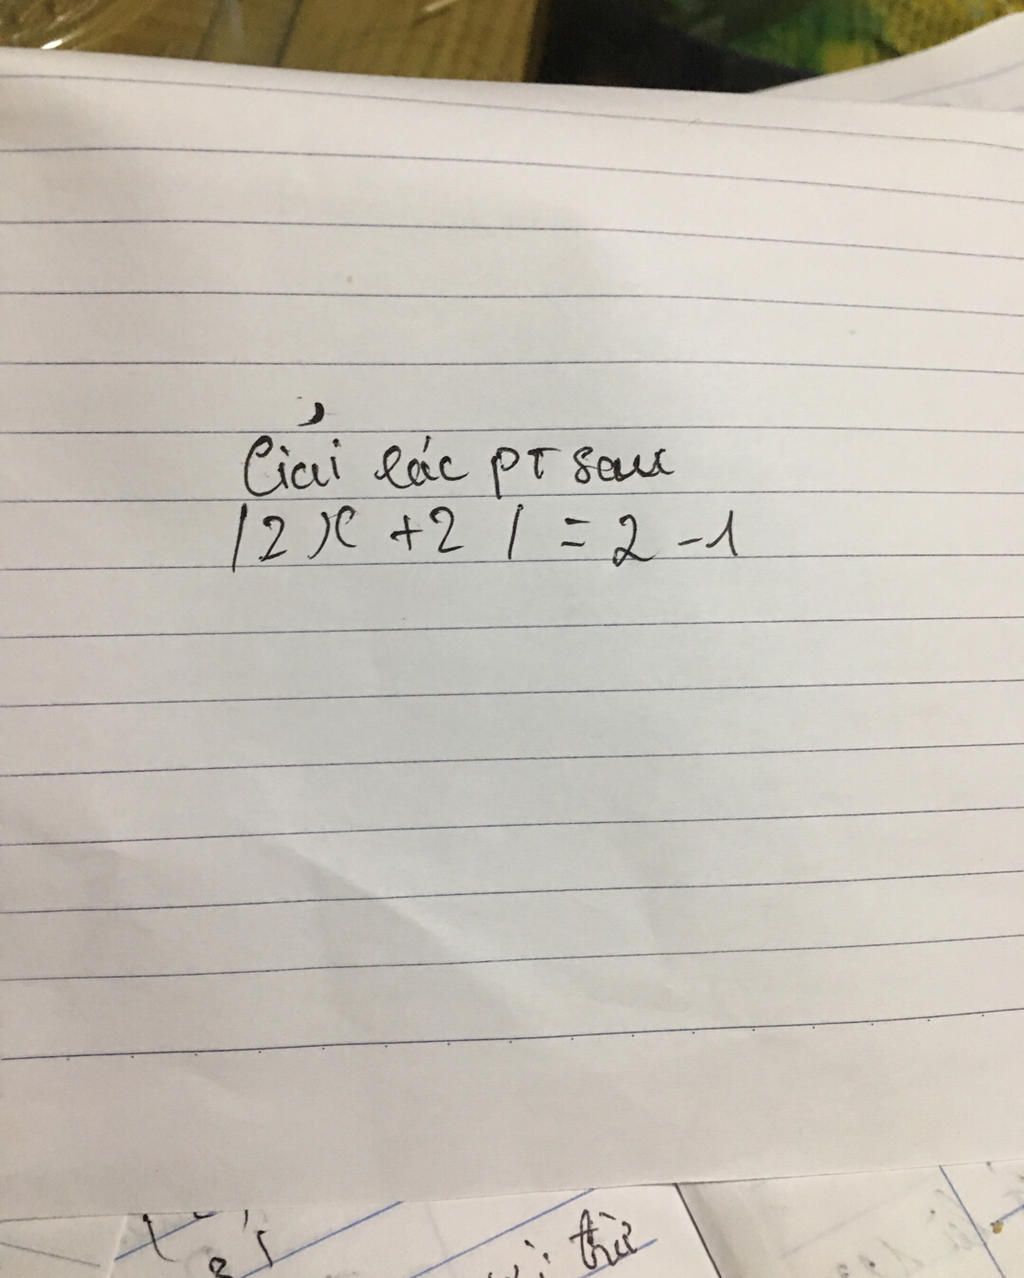 Giải các PT sau
|2x +2| = 2 -1
thừ